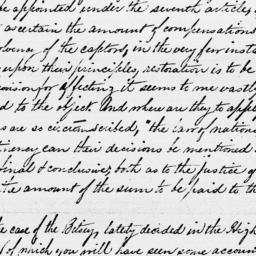 be appointed under the seventh article,
ascertain the amount of compensations
olvency of the captors, in the very few insta
upon their principles, restoration is to be
ovision for effecting it seems to me vastly
d to the object. And where are they to appl
s are so circumscribed, "the law of nations
tinency can their decisions be mentioned
final & conclusive, both as to the justice of
the amount of the sum to be paid to th
he case of the Betsey, lately decided in the High
of which you will have seen some accoun